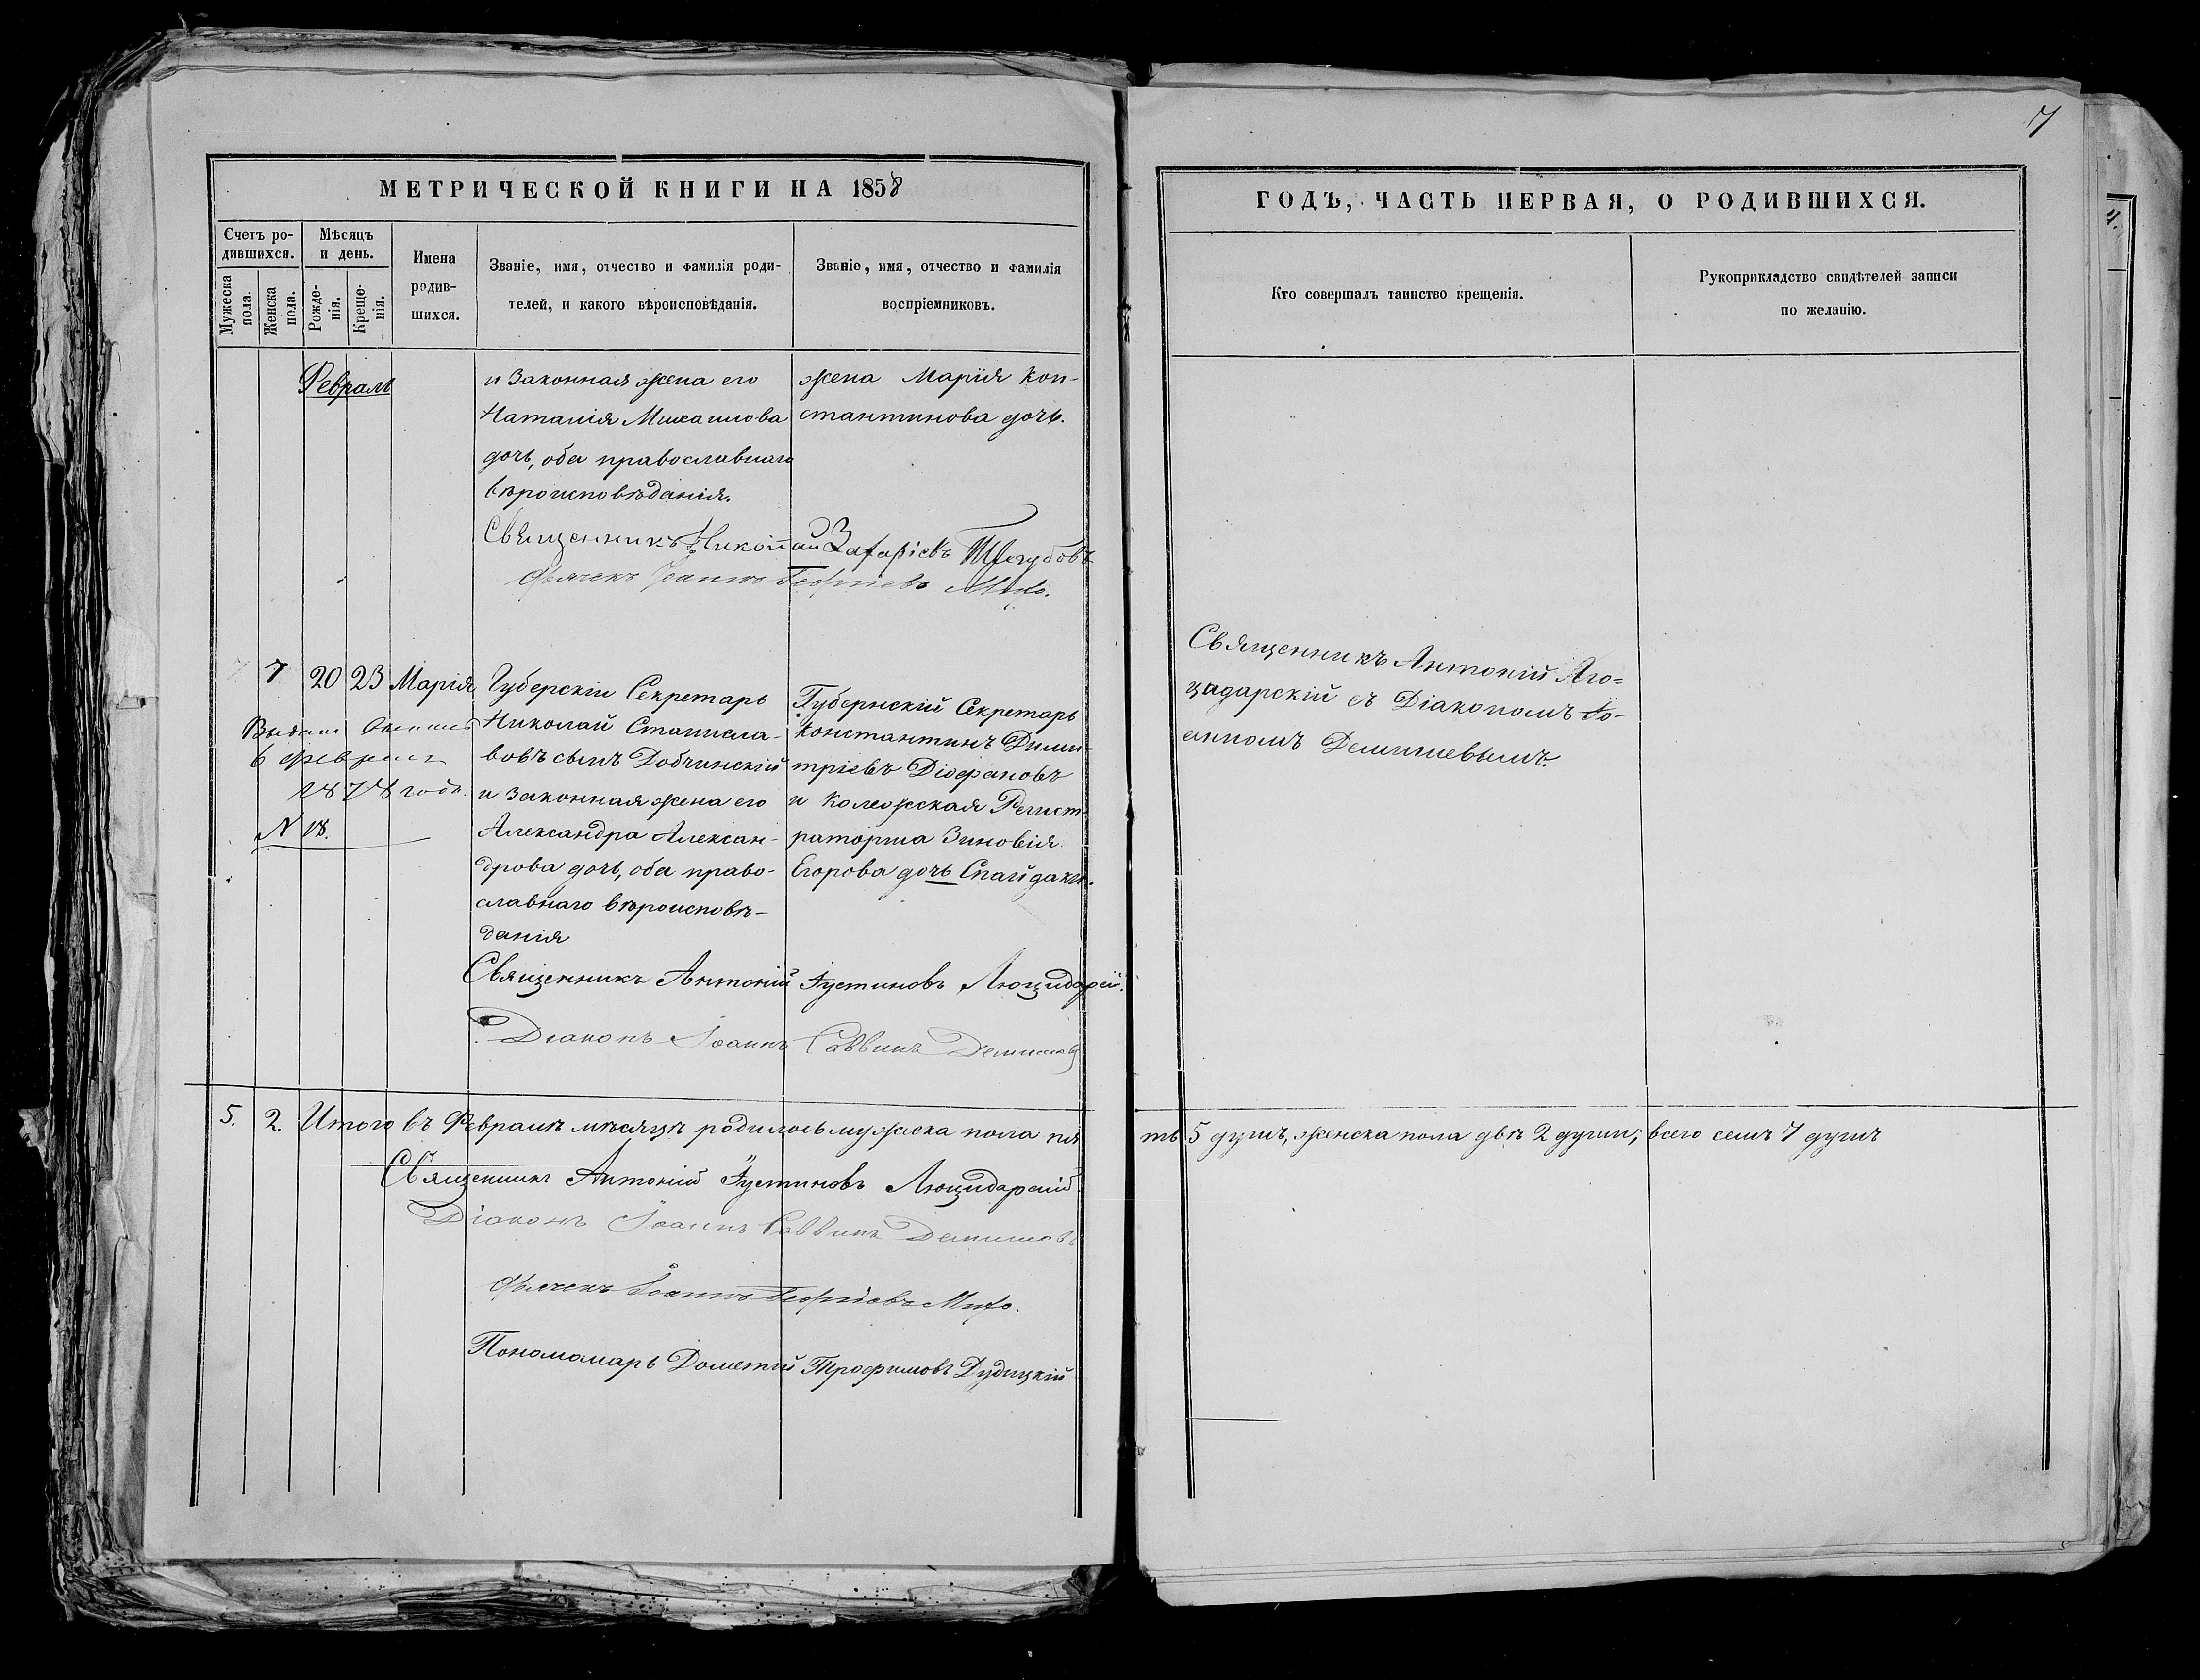 7
МЕТРИЧЕСКОЙ КНИГИ НА 1858
ГОДЪ, ЧАСТЬ ПЕРВАЯ, О РОДИВШИХСЯ.
Счетъ ро-
дившихся.
Мужеска
пола.
Женска
пола.
Мѣсяцъ
и день.
Рожде-
нія.
Креще-
нія.
Имена
родив-
шихся.
Званіе, имя, отчество и фамилія роди-
телей, и какого вѣроисповѣданія.
Званіе, имя, отчество и фамилія
воспріемниковъ.
Кто совершалъ таинство крещенія.
Рукоприкладство свидѣтелей записи
по желанію.
Февраль
и законная жена его
Наталія Михаилова
дочь, оба православнаго
вѣроисповѣданія.
жена Марія Кон-
стантинова дочь.
Священникъ Николай Захаріевъ
Іоаннъ Георгіевъ
7 20 23 Марія
6
1878 года.
N 18.
Губерскіи Секретарь
Николай Станисла-
вовъ сынъ Добчинскій
и законная жена его
Александра Алексан-
дрова дочь, оба право-
славнаго вѣроисповѣ-
данія
Губернскій Секретарь
Константинъ Дими-
тріевъ Діофановъ
и Колежская Регист-
раторша Зиновія
Егорова дочь
Священникъ Антоній Лю-
цидарскій съ Діакономъ Іо-
анномъ Демишевымъ.
Священникъ Антоній Іустиновъ Люцидарскій.
Діаконъ Іоаннъ Саввинъ Демишевъ
5. 2. Итого въ Февралѣ мѣсяцѣ родилось мужеска пола пя
ть 5 душъ, женска пола двѣ 2 души; всего семь 7 душъ
Священникъ Антоній Іустиновъ Люцидарскій
Діаконъ Іоаннъ Саввинъ Демишевъ
Іоаннъ Георгіевъ
Пономомарь Дометій Трофимовъ Дудицкій